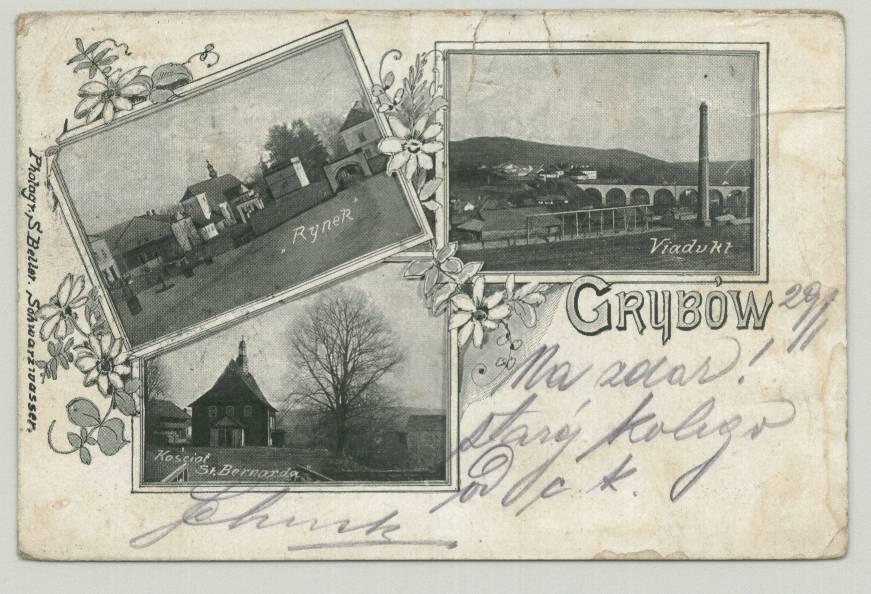 Photogr, S. Beller. Schwarzwasser.
„Rynek"
Viadukt
GRYBÓW
Kościoł
St. Bernarda
29/1
Na zdar!
starý kolego
od c k.